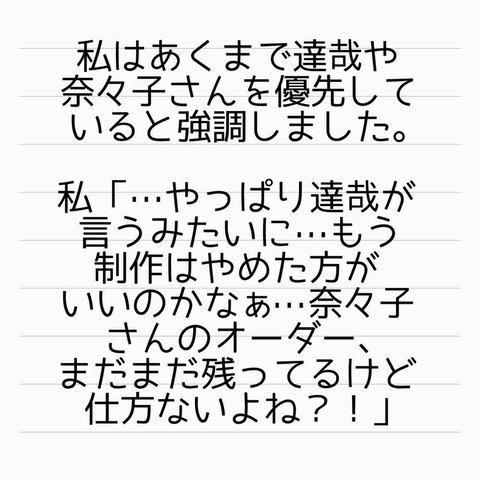 私はあくまで達哉や
奈々子さんを優先して
いると強調しました。
私「…やっぱり達哉が
言うみたいに…もう
制作はやめた方が
いいのかなぁ…奈々子
さんのオーダー、
まだまだ残ってるけど
仕方ないよね？！」